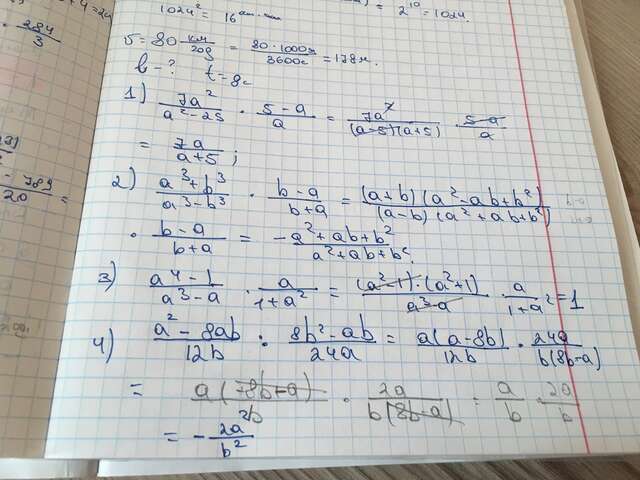 υ = 80 км/год = 80·1000м / 3600с = 178м.
t = 8с
ℓ - ?
1) 7a² / a²-25 · 5-a / a = 7a² / (a-5)(a+5) · 5-a / a
= 7a / a+5 ;
2) a³+b³ / a³-b³ · b-a / b+a = (a+b)(a²-ab+b²) / (a-b)(a²+ab+b²)
· b-a / b+a = - a²+ab+b² / a²+ab+b² ;
3) a⁴-1 / a³-a · a / 1+a² = (a²-1)·(a²+1) / a³-a · a / 1+a² = 1
4) a²-8ab / 12b : 8b²-ab / 24a = a(a-8b) / 12b · 24a / b(8b-a)
= a(8b-a) / b · 2a / b(8b-a) = a / b · 2a / b
= - 2a² / b²